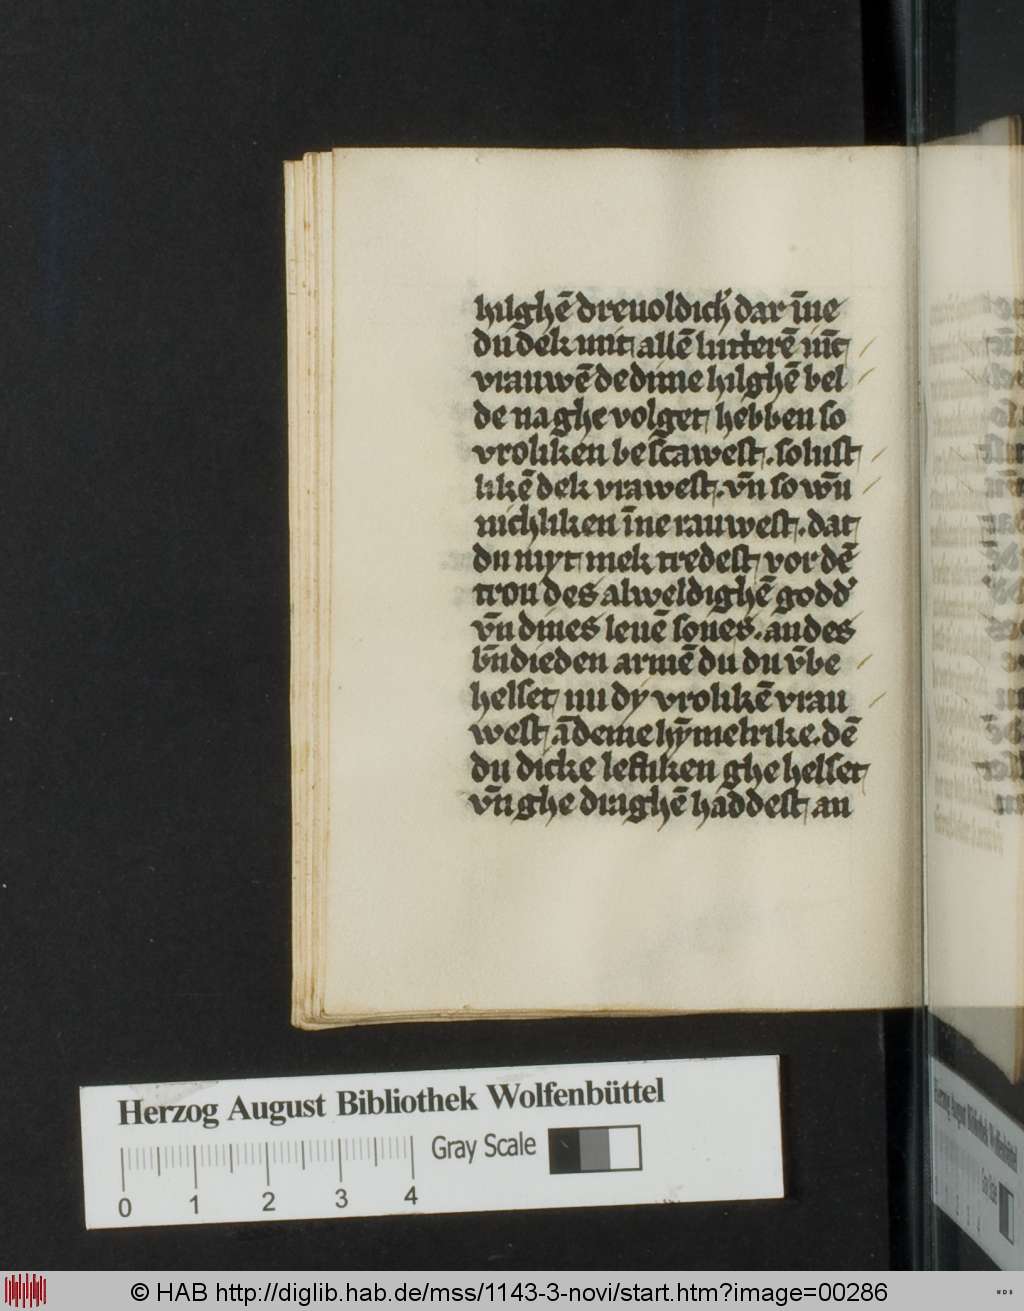 hilghē dreuoldich̄ dar īne
du dek mit allē lutterē iūc
vrauwē de dinne hilghē bel
de na ghe volget hebben so
vroliken bescawest . so lust
likē dek vrawest . vn̄ so wn̄
nichliken īne rauwest . dat
du myt mek tredest vor dē
tron des alweldighē godd'
vn̄ dines leuē sones . an des
bn̄dieden armē du du v̄be
helset nu dy vrolikē vrau
west . ā deme hȳmelrike . dē
du dicke lefliken ghe helset
vn̄ ghe draghē haddest an
Herzog August Bibliothek Wolfenbüttel
Gray Scale
0 1 2 3 4
© HAB http://diglib.hab.de/mss/1143-3-novi/start.htm?image=00286